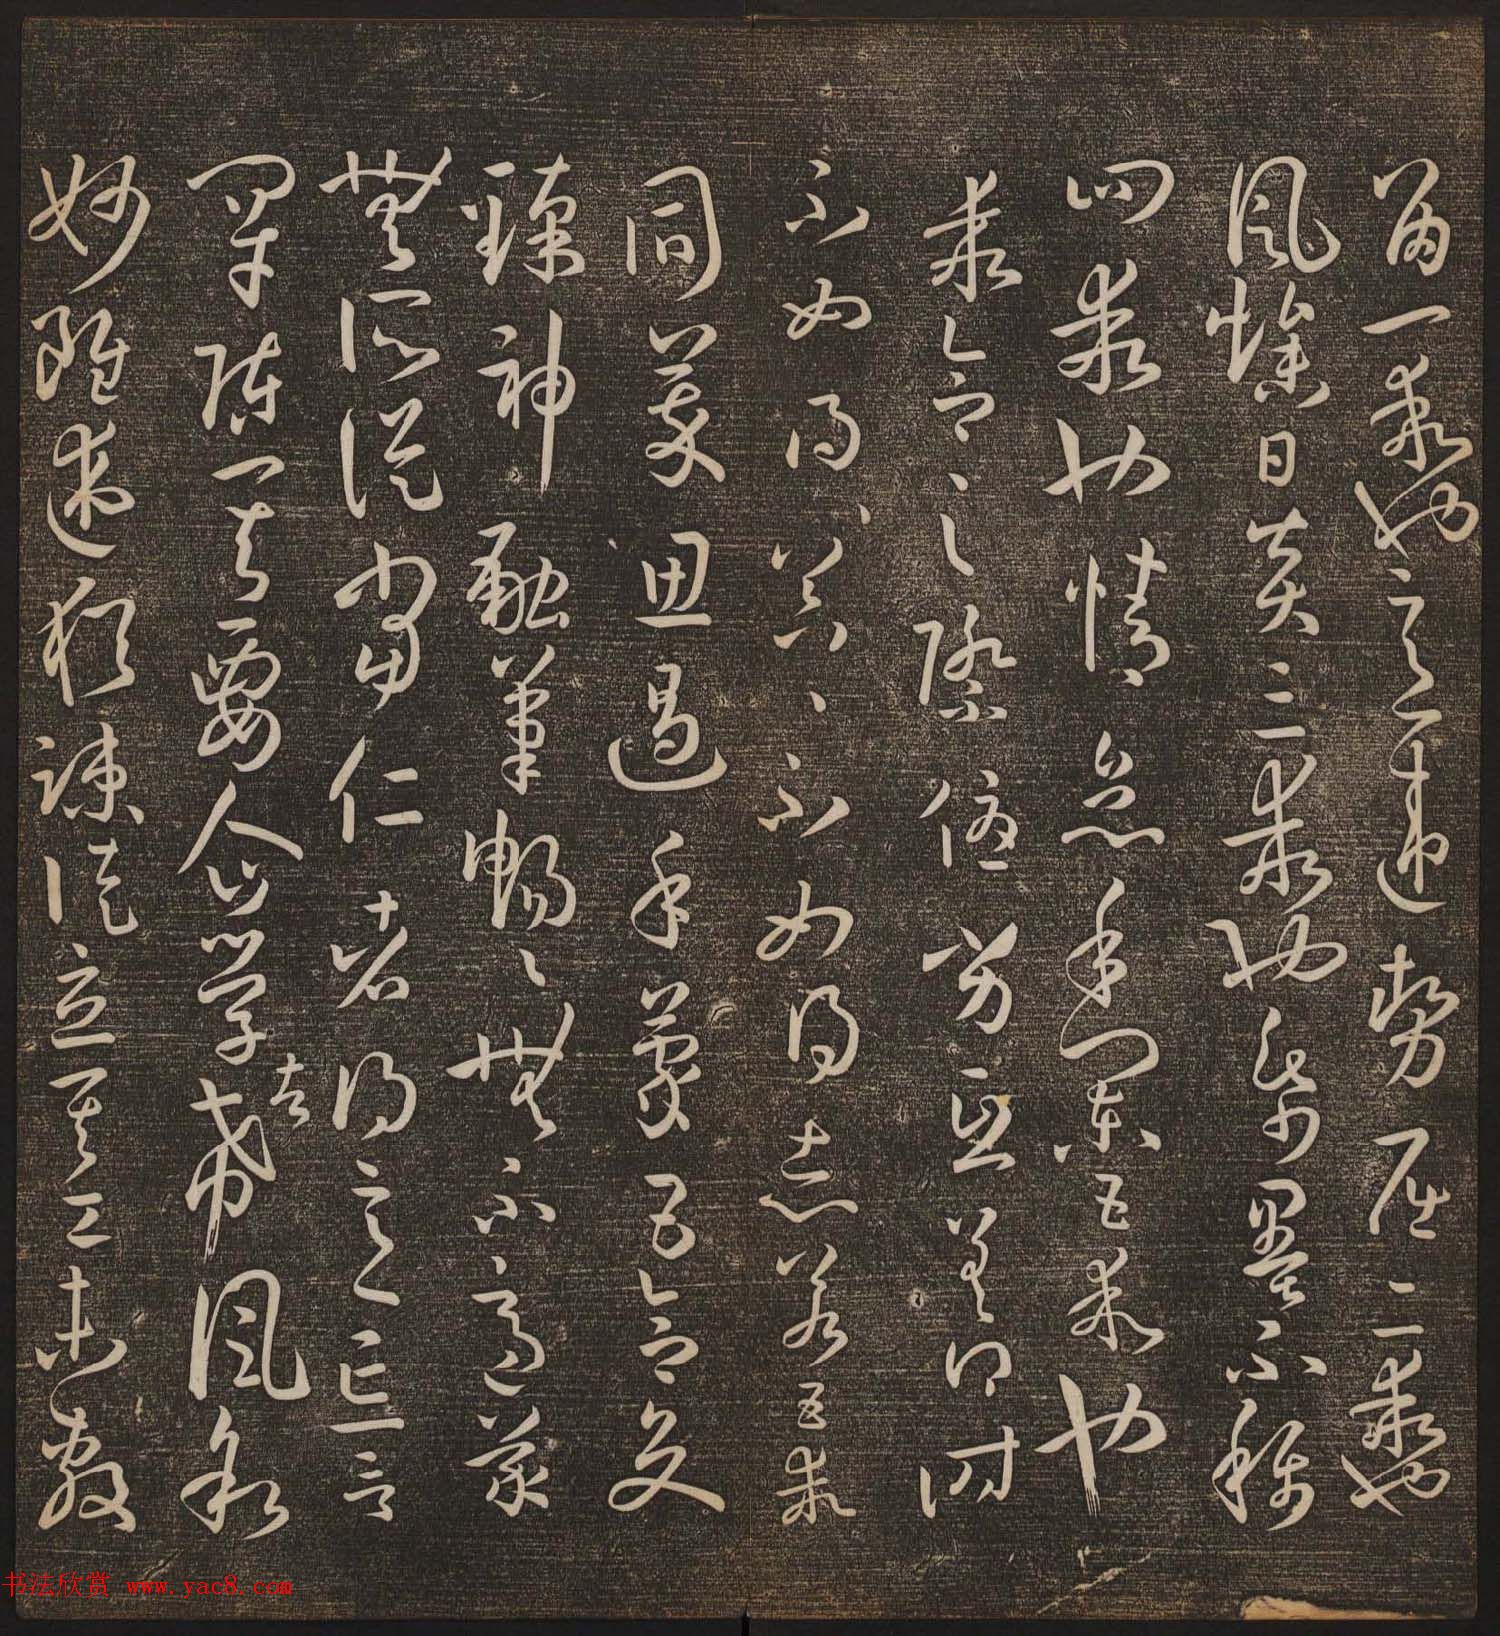 留一乖也意違勢屈二乖也
風燥日炎三乖也紙墨不稱
四乖也情怠手闌五乖也
乖合之際優劣互差得時
不如得〻器〻不如得志若五乖
同萃思遏手蒙五合交
臻神融筆暢〻無不適蒙
無所從當仁者得意忘言
罕陳其要企學者希風敘
妙雖述猶疎徒立其工未敷
书法欣赏 www.yac8.com